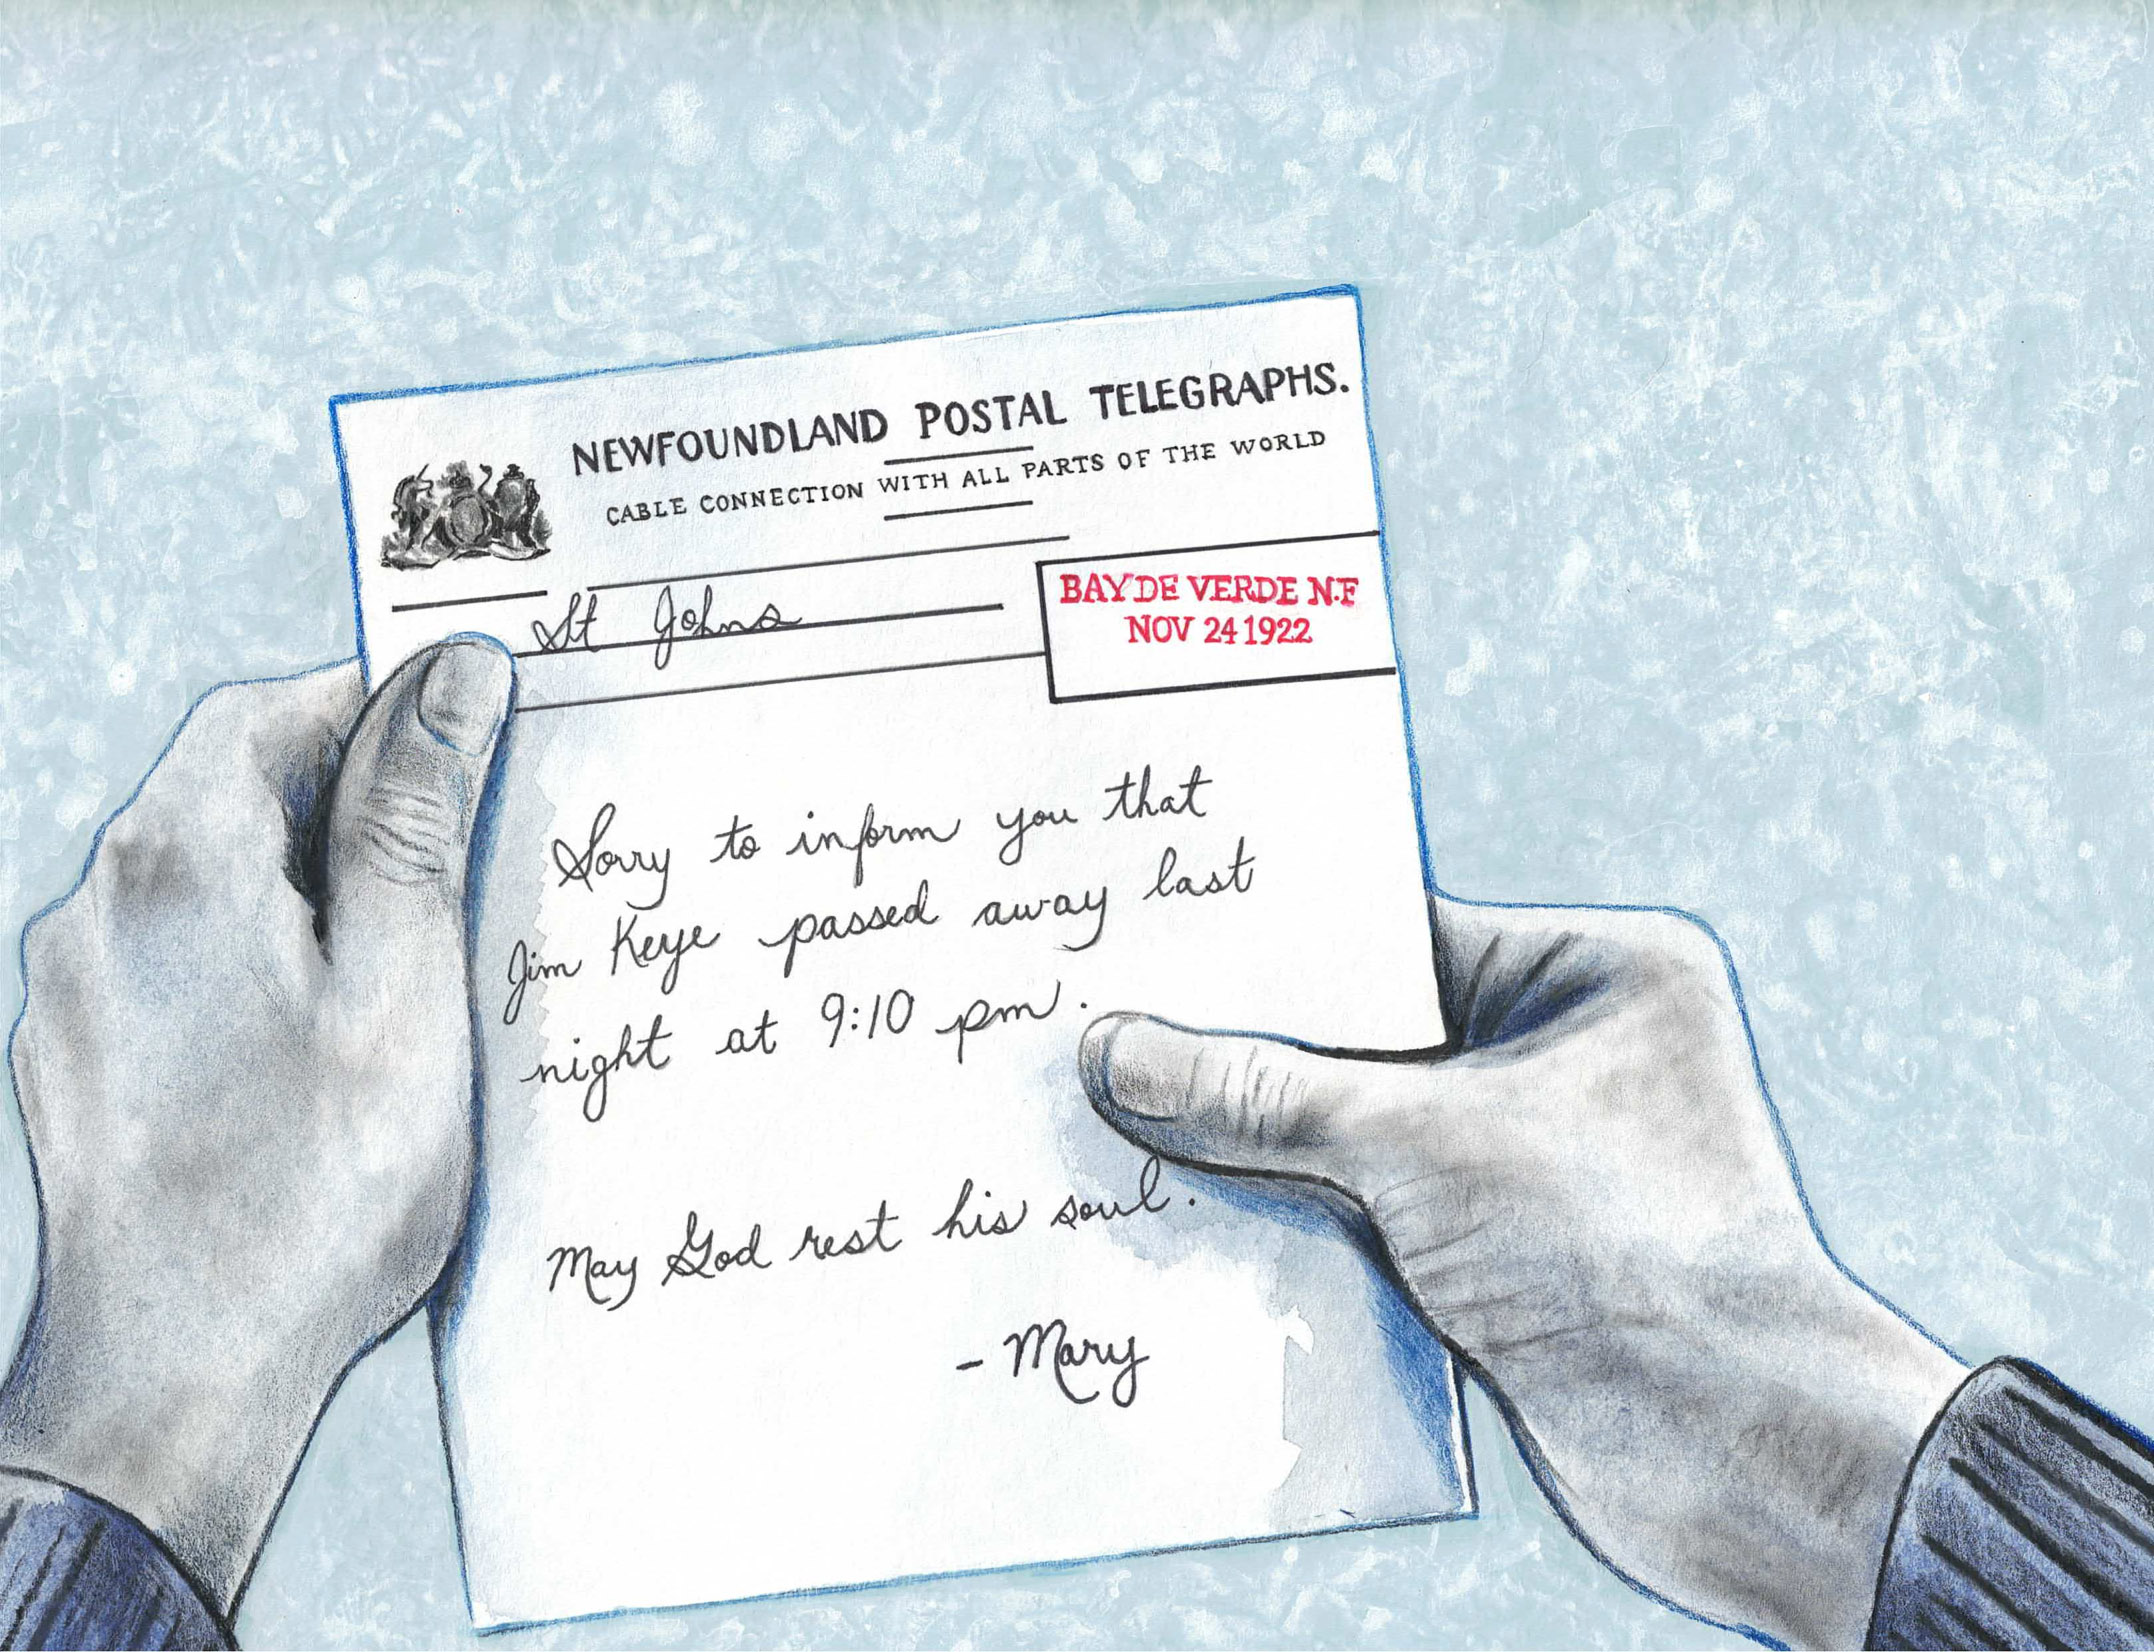 NEWFOUNDLAND POSTAL TELEGRAPHS.
CABLE CONNECTION WITH ALL PARTS OF THE WORLD
St Johns
BAY DE VERDE N.F
NOV 24 1922
Sorry to inform you that
Jim Keye passed away last
night at 9:10 pm.
May God rest his soul.
- Mary